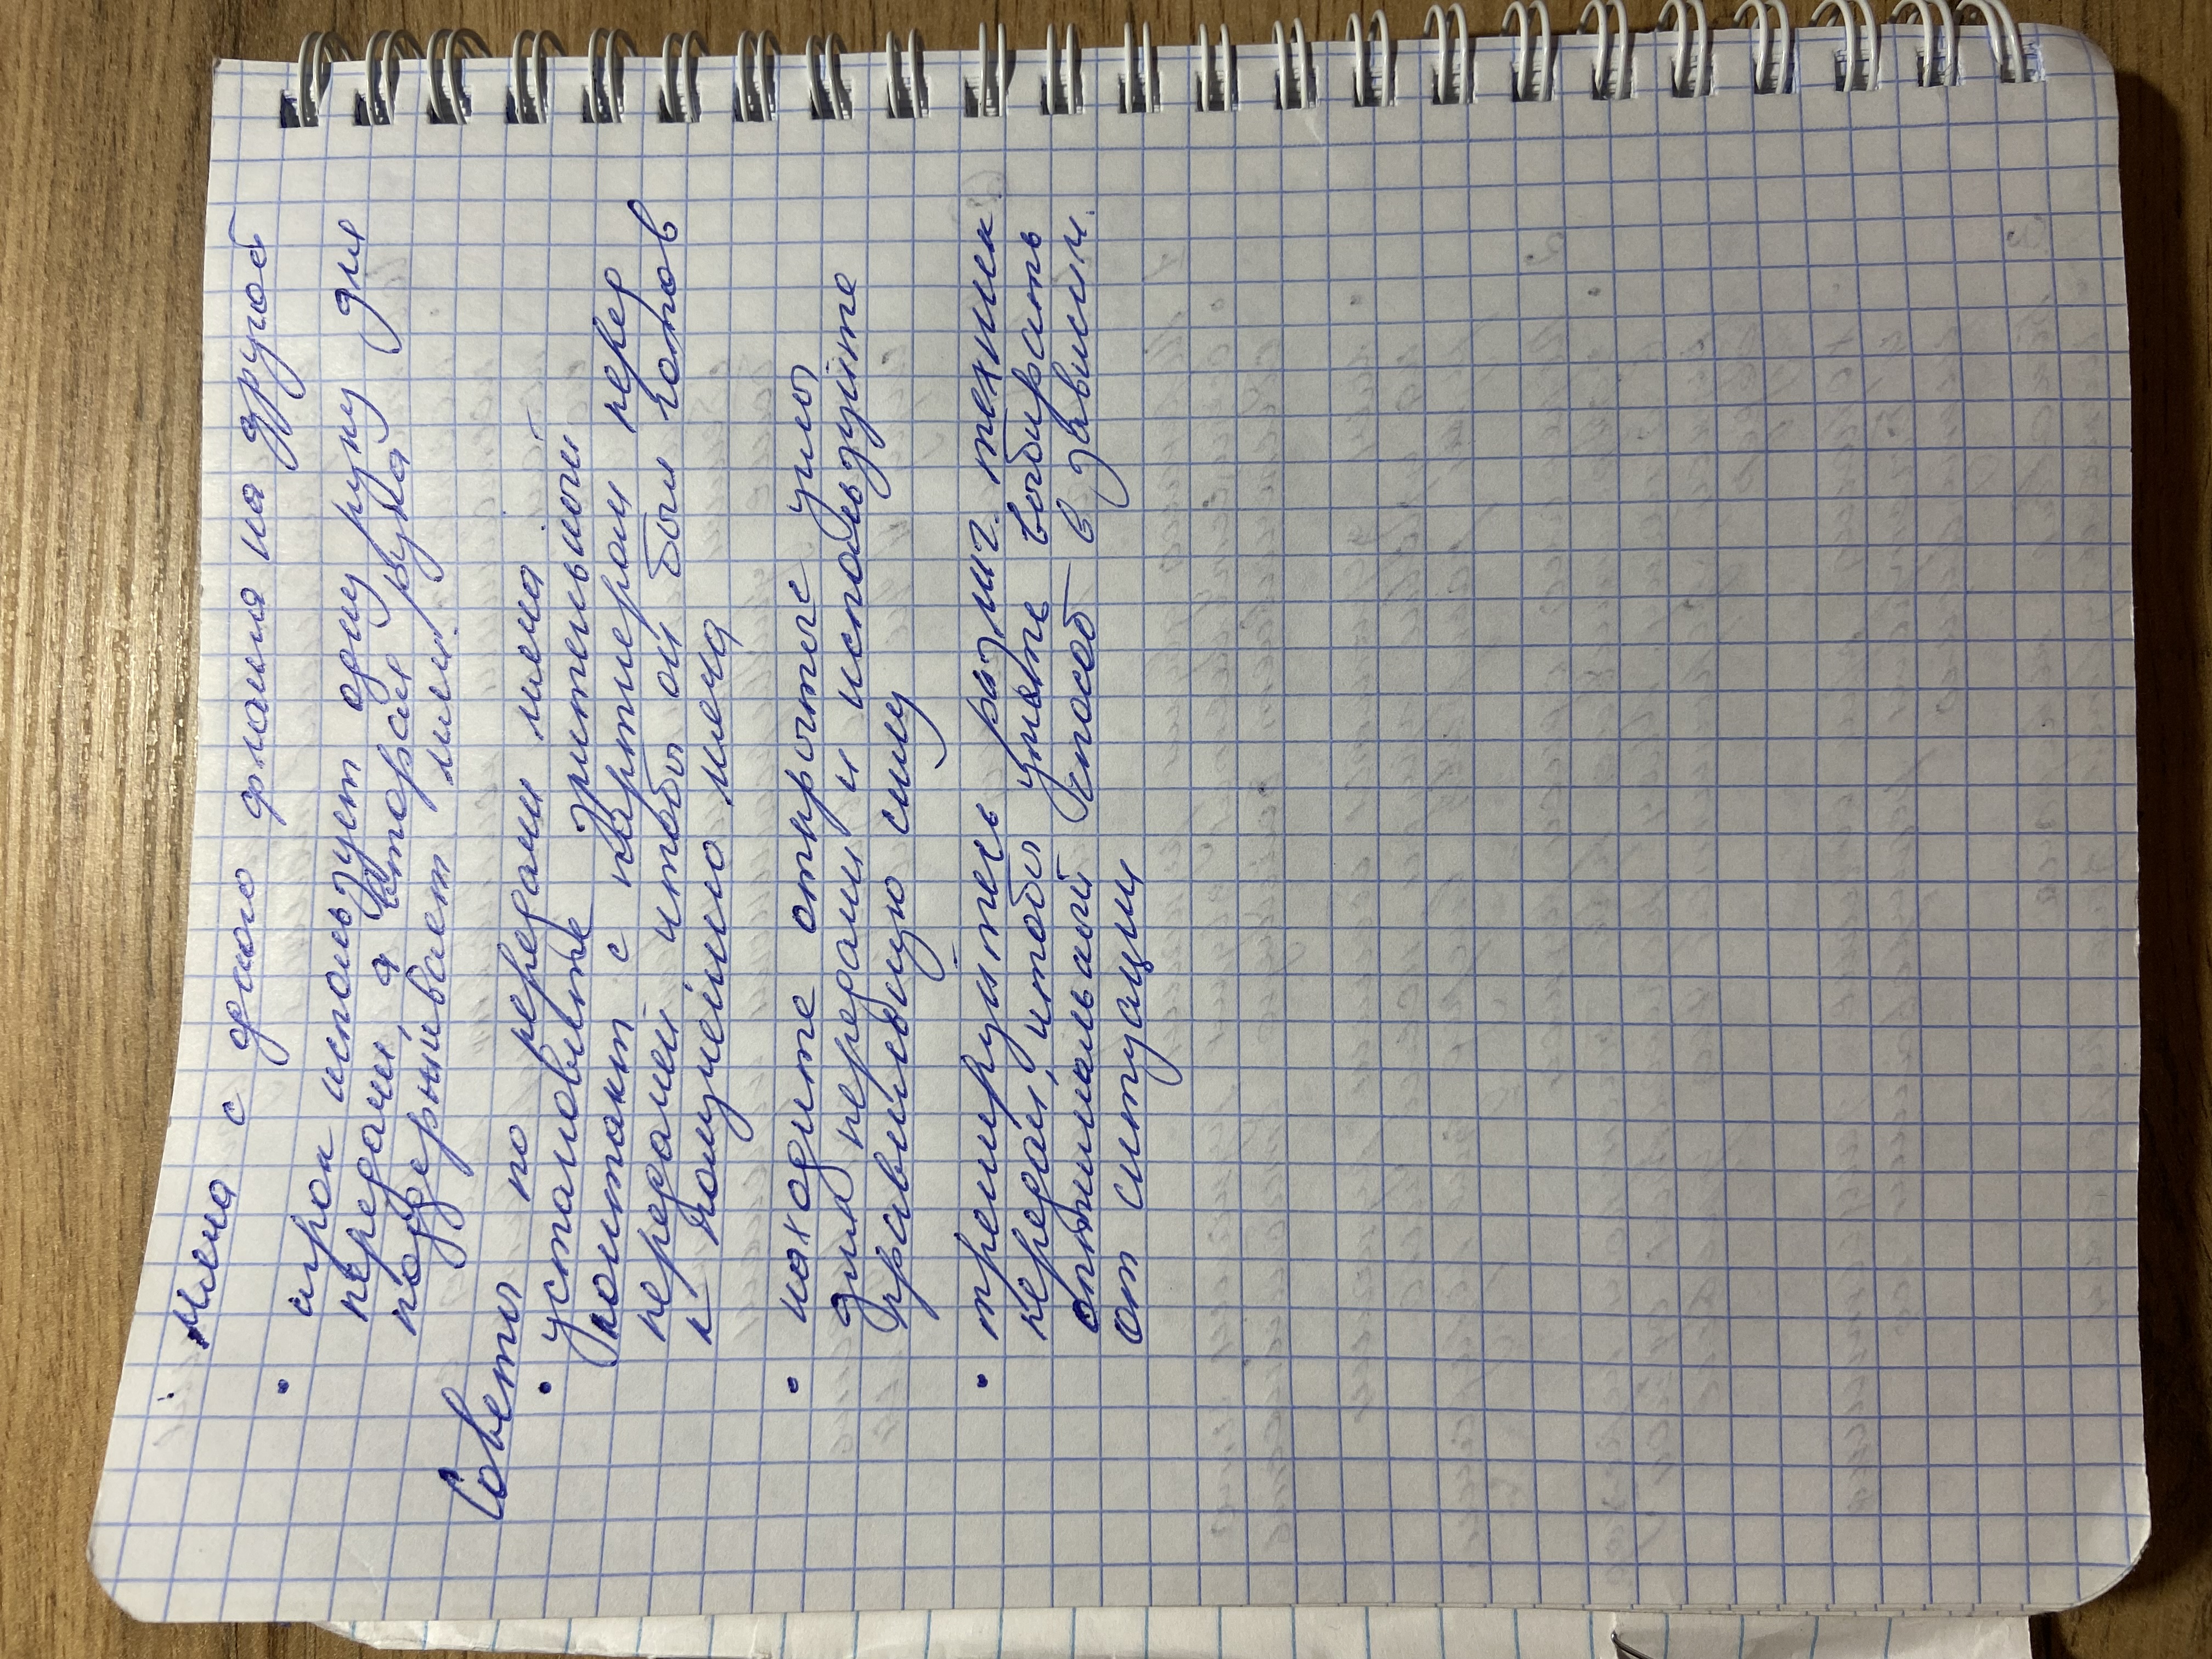 мяча с одного фланга на другой
• игрок использует одну руку для
передачи, а вторая рука
поддерживает мяч.
Советы по передачи мяча
• установите зрительный
контакт с партнером перед
передачей чтобы он был готов
к получению мяча
• находите открытые углы
для передачи и используйте
правильную силу
• тренируйтесь различ. техник
передач, чтобы умете выбирать
оптимальный способ в зависим.
от ситуации